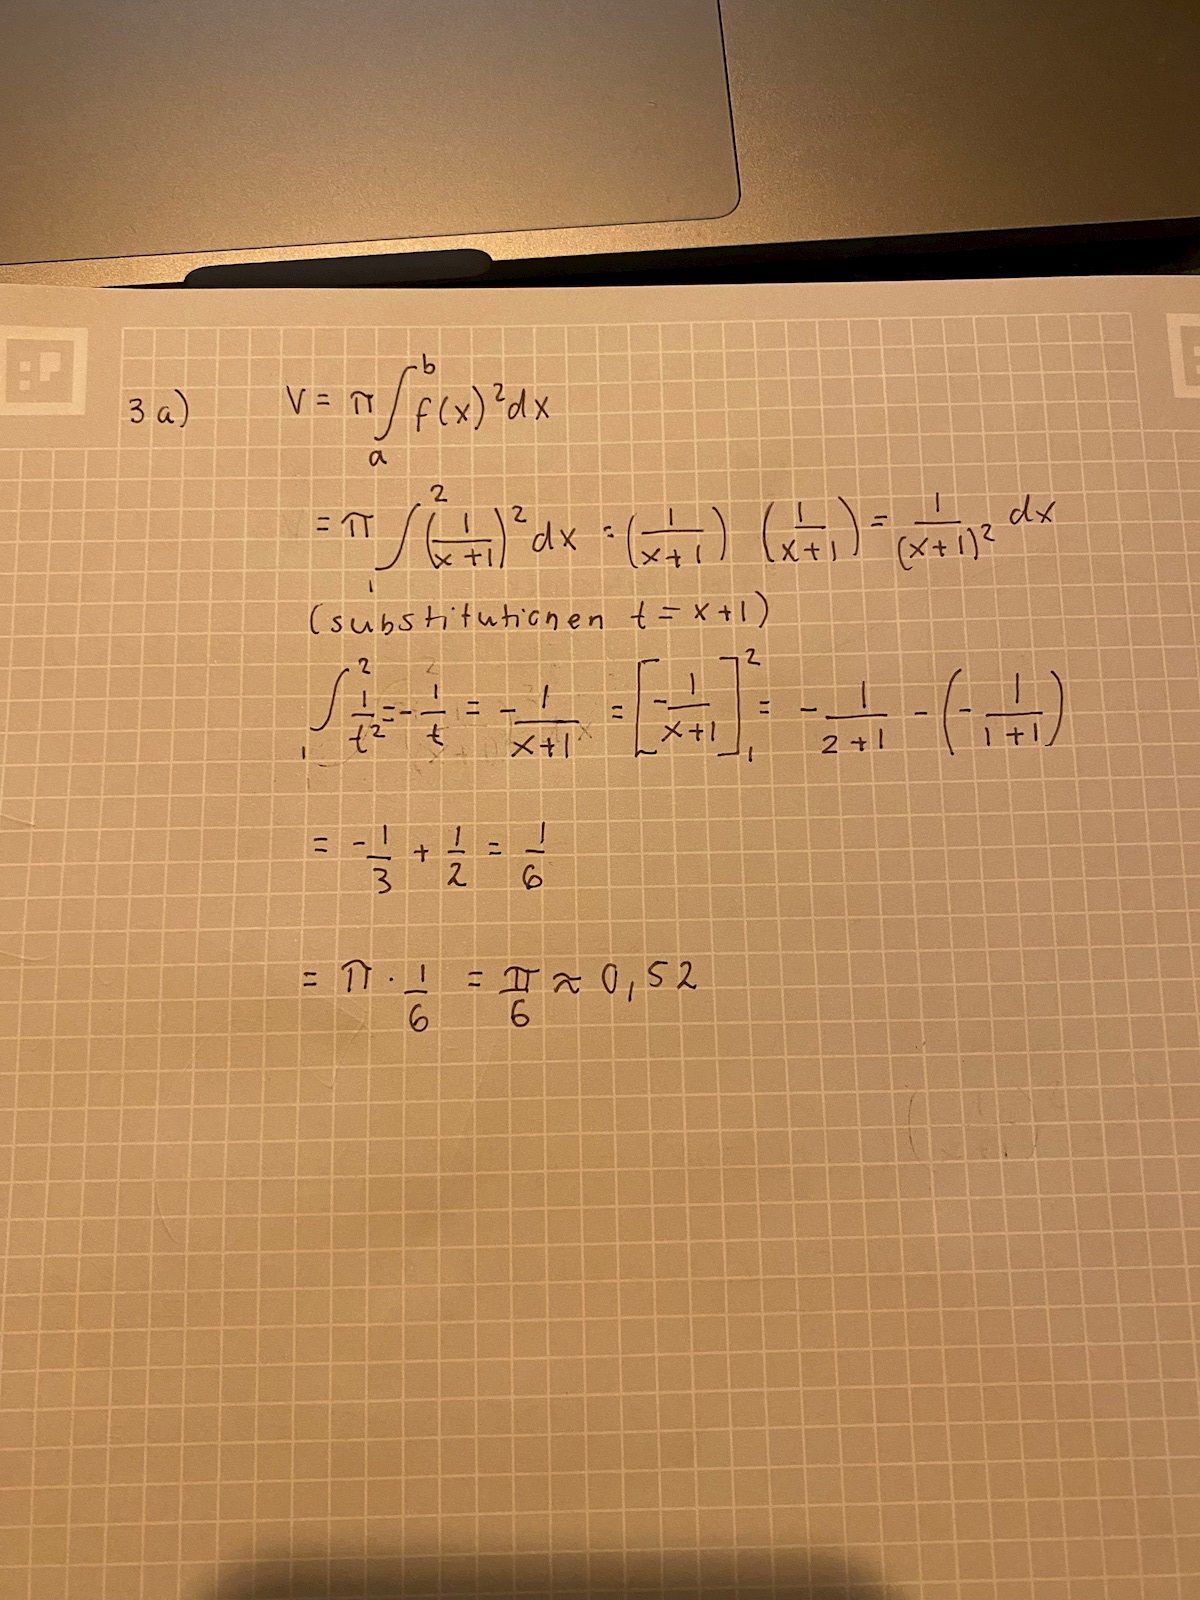 3a) V = π ∫_a^b f(x)² dx
= π ∫_1^2 (1/(x+1))² dx = (1/(x+1)) (1/(x+1)) = 1/(x+1)² dx
(substitutionen t = x+1)
∫_1^2 1/t² = -1/t = -1/(x+1) = [-1/(x+1)]_1^2 = -1/(2+1) - (-1/(1+1))
= -1/3 + 1/2 = 1/6
= π · 1/6 = π/6 ≈ 0,52